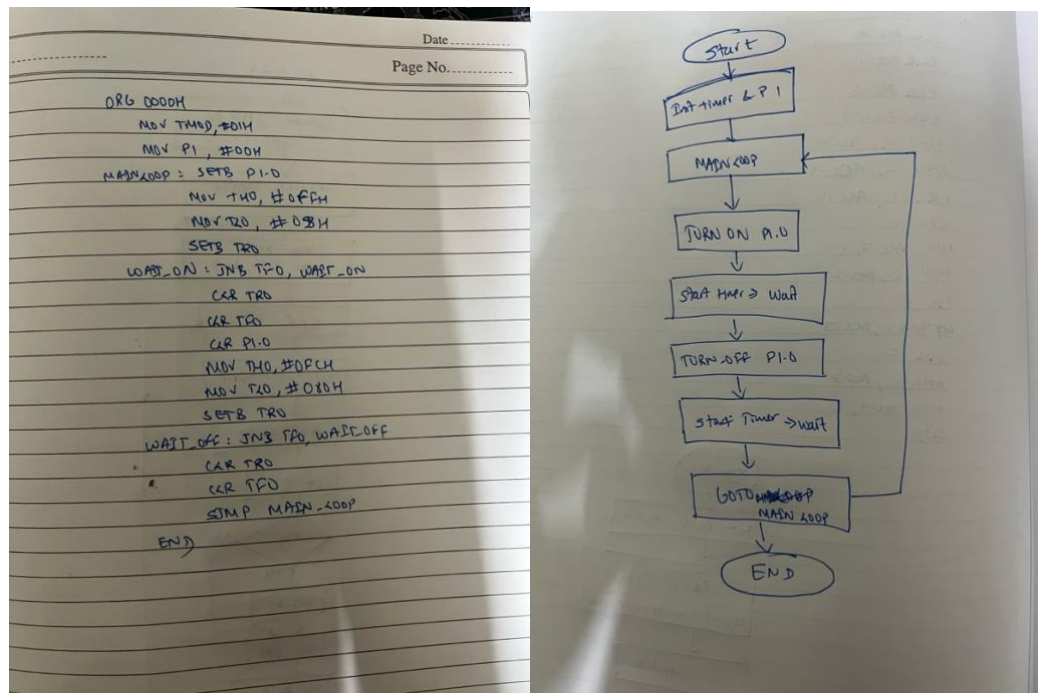 Date
Page No.
ORG 0000H
MOV TMOD, #01H
MOV P1, #00H
MAINLOOP: SETB P1.0
MOV TH0, #0FFH
MOV TL0, #
SETB TR0
WAIT_ON: JNB TF0, WAIT_ON
CLR TR0
CLR TF0
CLR P1.0
MOV TH0, #0FCH
MOV TL0, #080H
SETB TR0
WAIT_OFF: JNB TF0, WAIT_OFF
CLR TR0
CLR TF0
SJMP MAIN_LOOP
END
Start
Init timer & P1
MAIN LOOP
TURN ON P1.0
Start timer → Wait
TURN OFF P1.0
Start Timer → wait
GOTO
MAIN LOOP
END